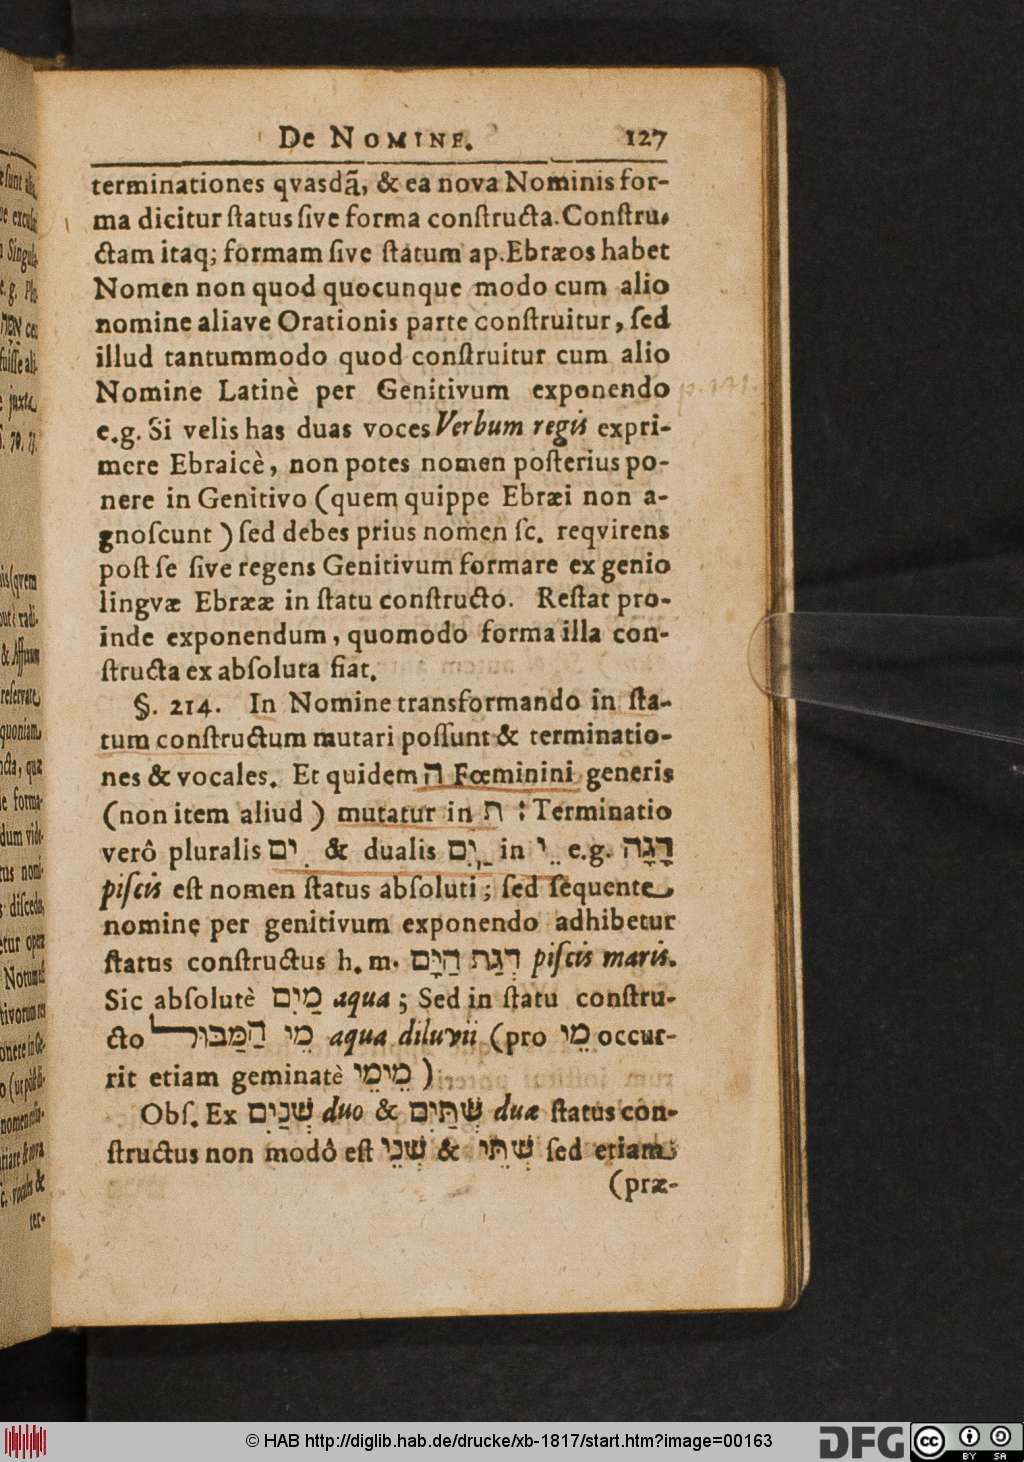 De Nomine. 127
terminationes qvasdã, & ea nova Nominis for-
ma dicitur ſtatus ſive forma conſtructa. Conſtru-
ctam itaq; formam ſive ſtatum ap. Ebræos habet
Nomen non quod quocunque modo cum alio
nomine aliave Orationis parte conſtruitur, ſed
illud tantummodo quod conſtruitur cum alio
Nomine Latinè per Genitivum exponendo
e.g. Si velis has duas voces Verbum regis expri-
mere Ebraicè, non potes nomen poſterius po-
nere in Genitivo (quem quippe Ebræi non a-
gnoſcunt) ſed debes prius nomen ſc. reqvirens
poſt ſe ſive regens Genitivum formare ex genio
lingvæ Ebrææ in ſtatu conſtructo. Reſtat pro-
inde exponendum, quomodo forma illa con-
ſtructa ex abſoluta fiat.
§. 214. In Nomine transformando in ſta-
tum conſtructum mutari poſſunt & terminatio-
nes & vocales. Et quidem ה Fœminini generis
(non item aliud) mutatur in ת : Terminatio
verô pluralis ִים & dualis ַיִם in ֵי e.g. דָּגָה
piſcis eſt nomen ſtatus abſoluti; ſed ſequente
nomine per genitivum exponendo adhibetur
ſtatus conſtructus h. m. דְּגַת הַיָּם piſcis maris.
Sic abſolutè מַיִם aqua; Sed in ſtatu conſtru-
cto מֵי הַמַּבּוּל aqua diluvii (pro מֵי occur-
rit etiam geminatè מֵימֵי)
Obſ. Ex שְׁנַיִם duo & שְׁתַּיִם duæ ſtatus con-
ſtructus non modô eſt שְׁנֵי & שְׁתֵּי ſed etiam
(præ-
© HAB http://diglib.hab.de/drucke/xb-1817/start.htm?image=00163
DFG
cc BY SA